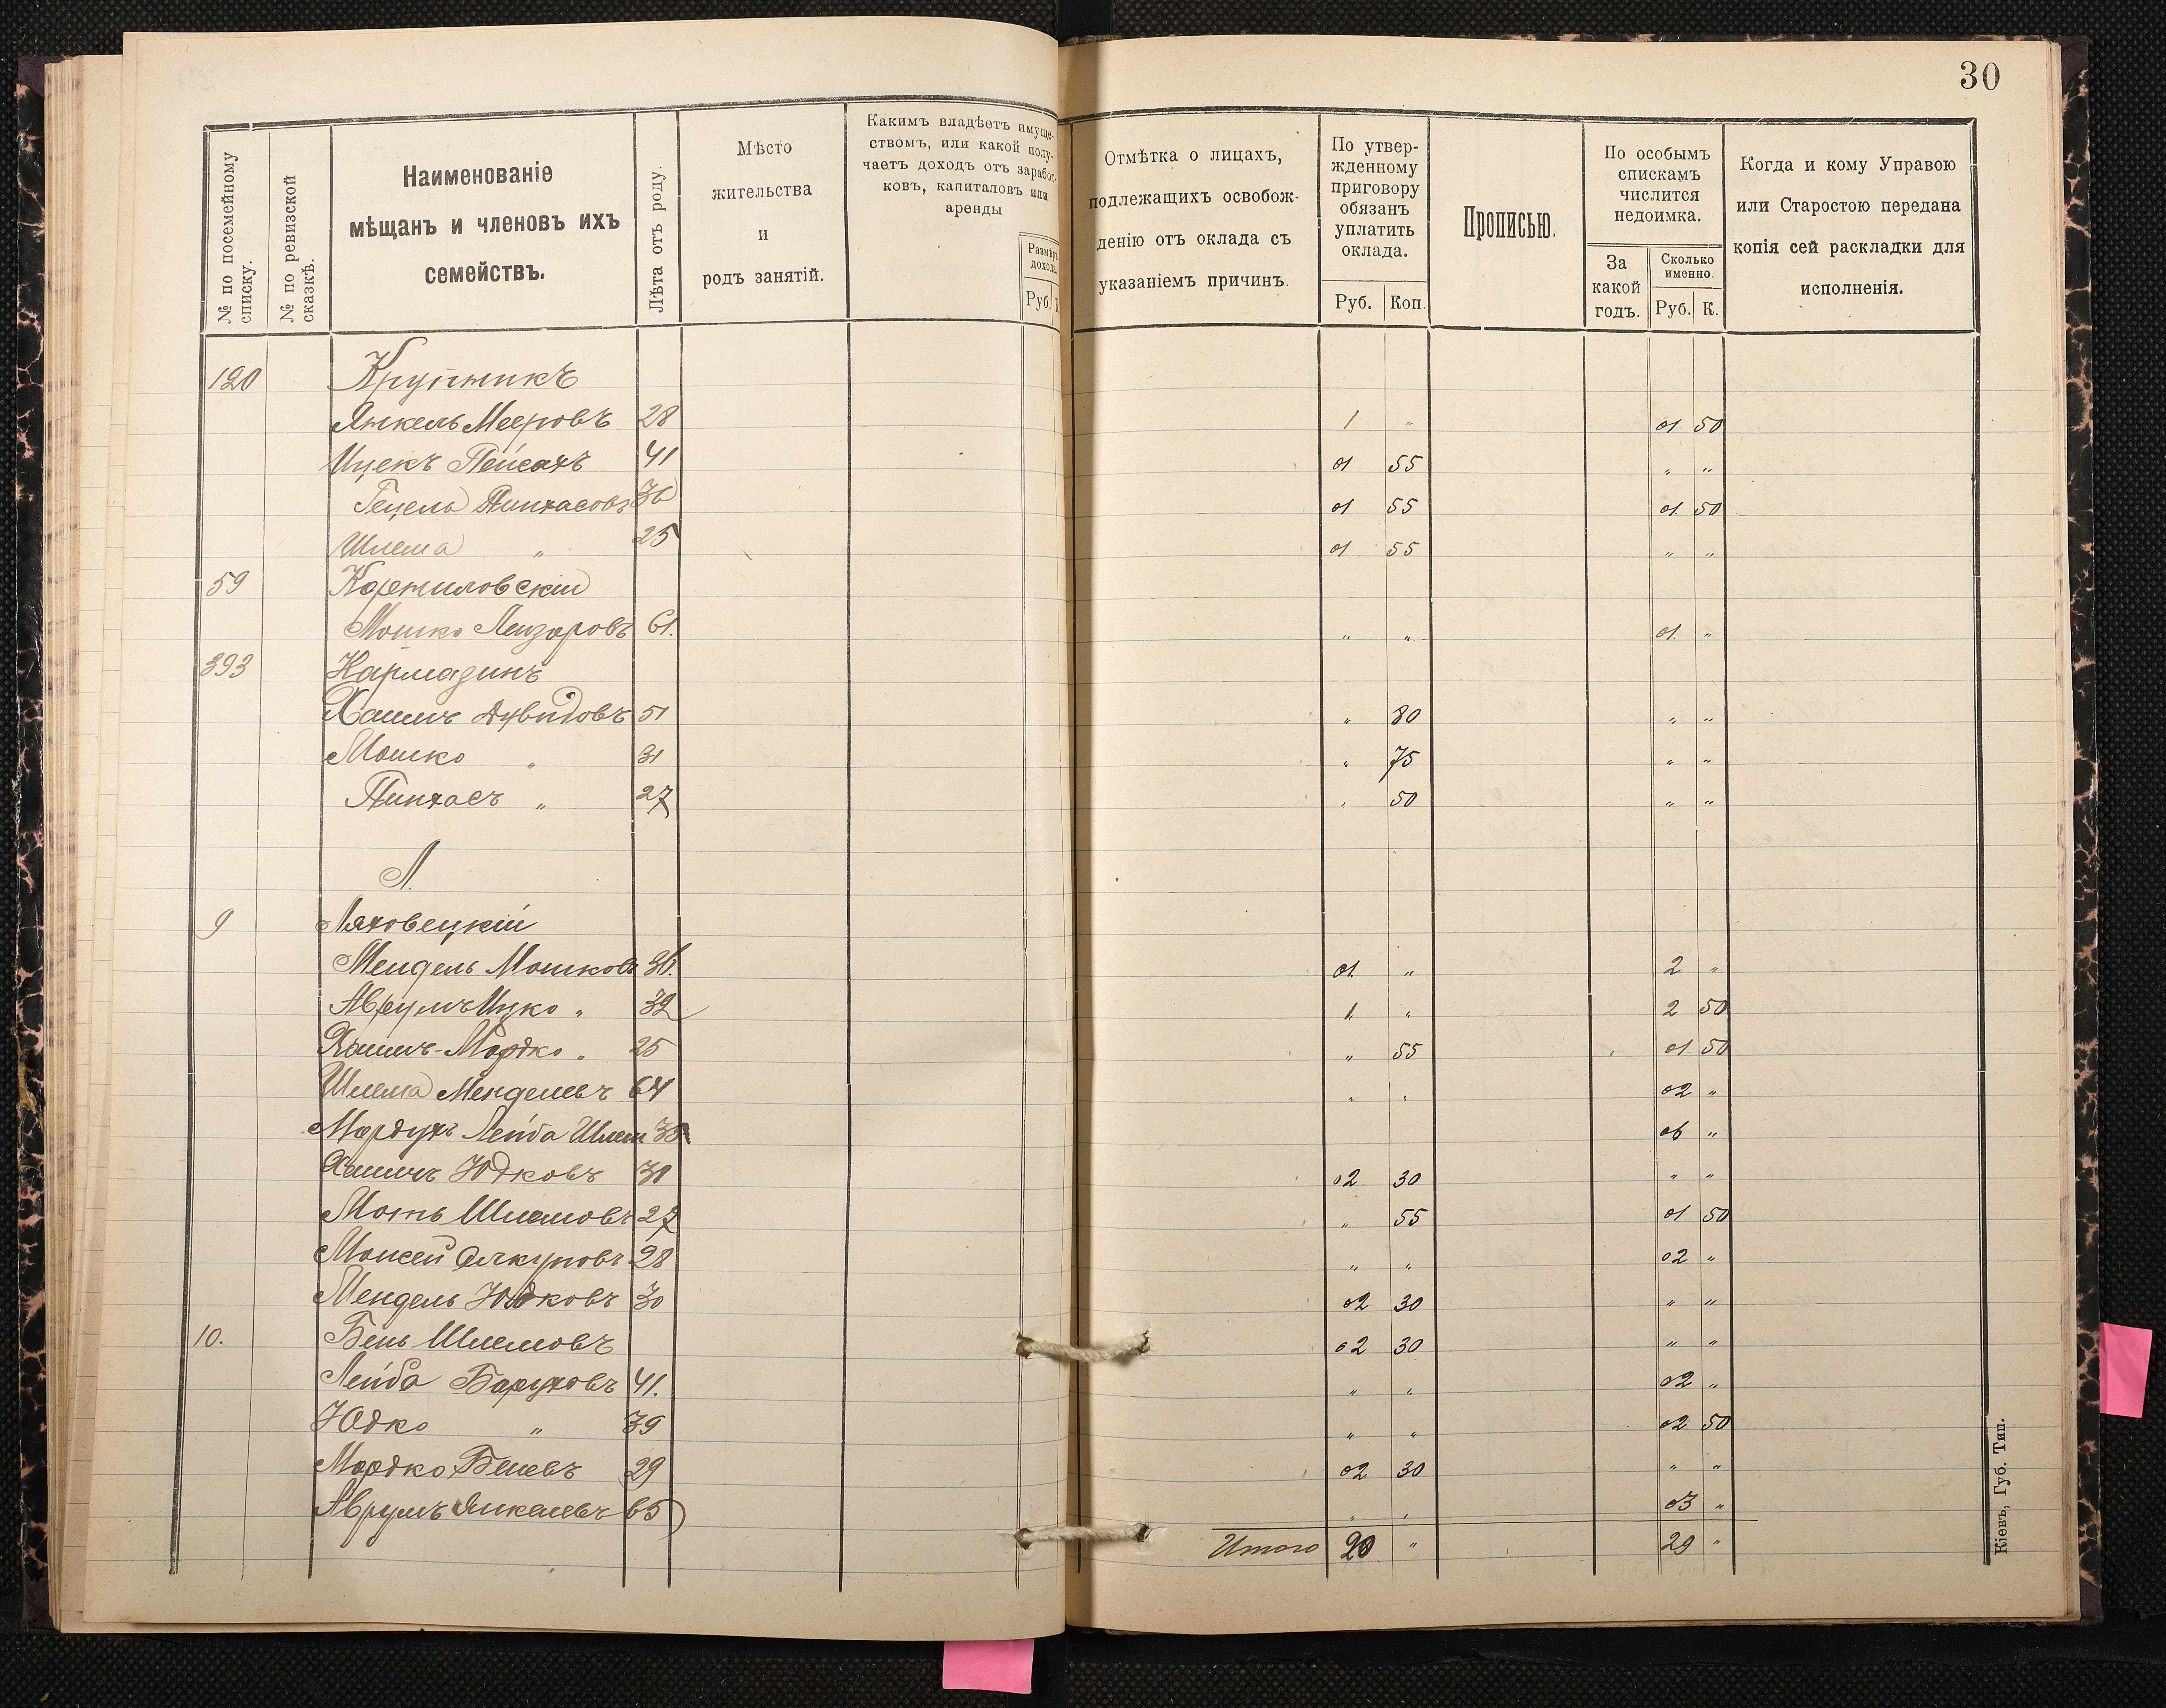 30
№ по посемейному списку.
№ по ревизской сказкѣ.
Наименованіе
мѣщанъ и членовъ ихъ
семействъ.
Лѣта отъ роду.
Мѣсто
жительства
и
родъ занятій.
Какимъ владѣетъ имуще-
ствомъ, или какой полу-
чаетъ доходъ отъ заработ-
ковъ, капиталовъ или
аренды
Размѣръ
дохода.
Руб.
Отмѣтка о лицахъ,
подлежащихъ освобож-
денію отъ оклада съ
указаніемъ причинъ.
По утвер-
жденному
приговору
обязанъ
уплатить
оклада.
Руб. Коп.
Прописью.
По особымъ
спискамъ
числится
недоимка.
За
какой
годъ.
Сколько
именно.
Руб. К.
Когда и кому Управою
или Старостою передана
копія сей раскладки для
исполненія.
120 Крупникъ
Янкель Мееровъ 28 1 " 01 50
Ицекъ Пейсахъ 41 01 55 " "
Гецель Пинхасовъ 36 01 55 01 50
Шлема " 25 01 55 " "
59 Корниловскій
Мошко Лейзоровъ 61. " " 01. "
393 Кармазинъ
Хаимъ Дувидовъ 51 " 80 " "
Мошко " 31 " 75 " "
Пинхасъ " 27 " 50 " "
Л.
9 Ляховецкій
Мендель Мошковъ 36. 01. " 2 "
Аврумъ Ицко " 32 1. " 2 50
Хаимъ-Мордко " 25 " 55 01 50
Шлема Менделевъ 64 " " 02 "
Мордухъ Лейба Шлем 35 " 06 "
Хаимъ Юдковъ 30 02 30 " "
Моть Шлемовъ 27 " 55 01 50
Моисей 28 " " 02 "
Мендель Юдковъ 30 02 30 " "
10. Бень Шлемовъ 02 30 " "
Лейба Боруховъ 41. " " 02 "
Юдко " 39 " " 02 50
Мордко Беневъ 29 02 30 " "
Аврумъ Янкелевъ 65 " " 03 "
Итого 20 " 29 "
Кіевъ, Губ. Тип.